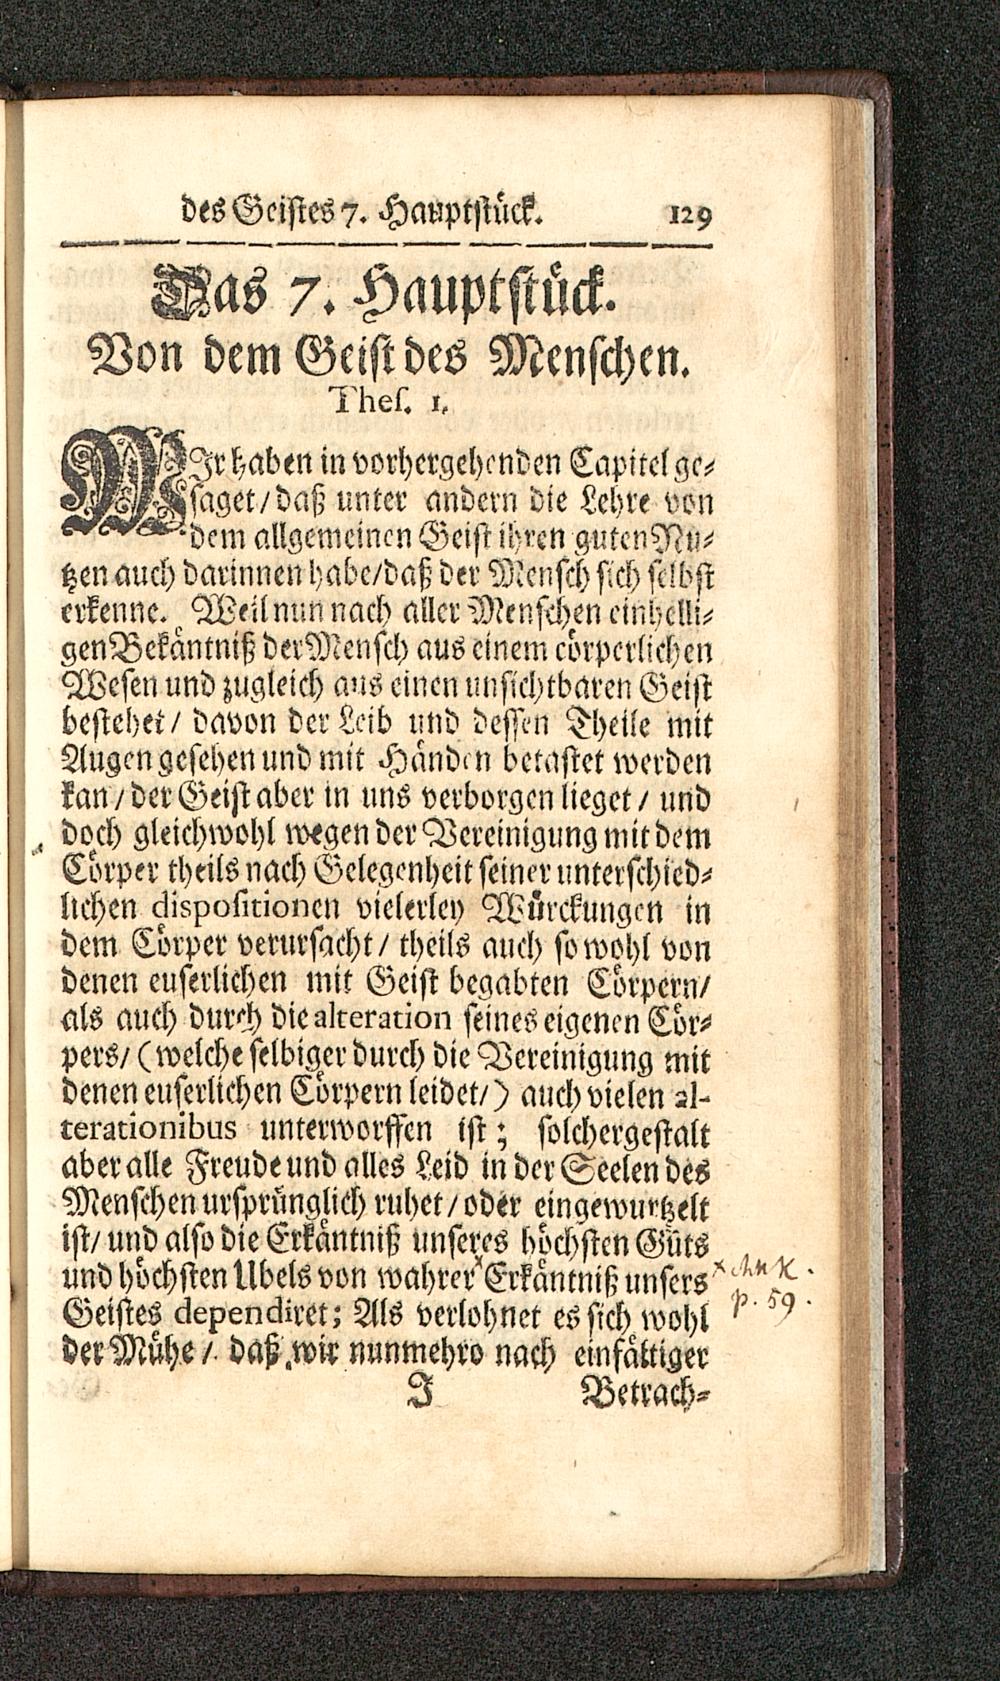 des Geistes 7. Hauptstück. 129
Das 7. Hauptstück.
Von dem Geist des Menschen.
Thes. 1.
WIr haben in vorhergehenden Capitel ge-
saget/ daß unter andern die Lehre von
dem allgemeinen Geist ihren guten Nu-
tzen auch darinnen habe/ daß der Mensch sich selbst
erkenne. Weil nun nach aller Menschen einhelli-
gen Bekäntniß der Mensch aus einem cörperlichen
Wesen und zugleich aus einen unsichtbaren Geist
bestehet/ davon der Leib und dessen Theile mit
Augen gesehen und mit Händen betastet werden
kan/ der Geist aber in uns verborgen lieget/ und
doch gleichwohl wegen der Vereinigung mit dem
Cörper theils nach Gelegenheit seiner unterschied-
lichen dispositionen vielerley Würckungen in
dem Cörper verursacht/ theils auch so wohl von
denen euserlichen mit Geist begabten Cörpern/
als auch durch die alteration seines eigenen Cör-
pers/ (welche selbiger durch die Vereinigung mit
denen euserlichen Cörpern leidet/) auch vielen al-
terationibus unterworffen ist; solchergestalt
aber alle Freude und alles Leid in der Seelen des
Menschen ursprünglich ruhet/ oder eingewurtzelt
ist/ und also die Erkäntniß unseres höchsten Guts
und höchsten Ubels von wahrer x Erkäntniß unsers
x p. 59.
Geistes dependiret; Als verlohnet es sich wohl
der Mühe/ daß wir nunmehro nach einfältiger
J Betrach-